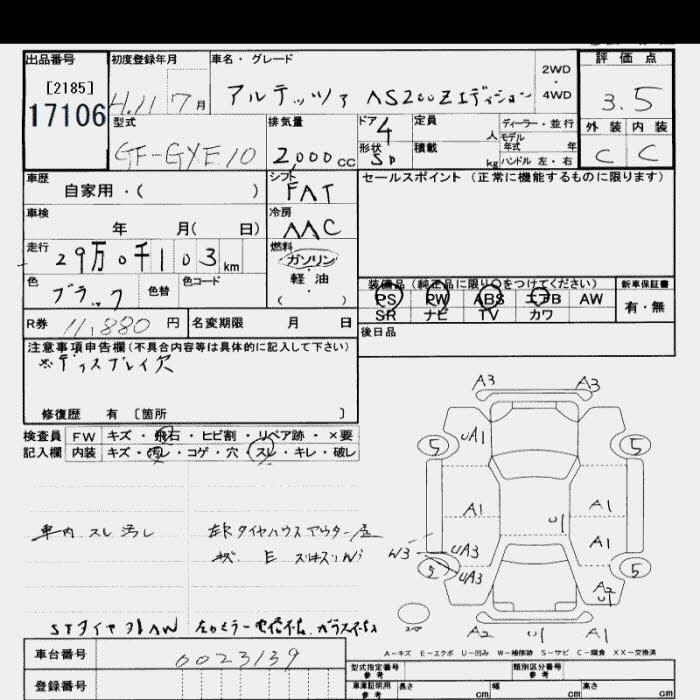 出品番号
[2185]
17106
初度登録年月
H.11 7月
車名・グレード
アルテッツァ AS200Zエディション
2WD
4WD
評価点
3.5
外装 内装
C C
型式
GF-GYE10
排気量
2,000cc
ドア 4
形状 SD
定員 人
積載 kg
ディーラー・並行
モデル年式 年
ハンドル 左・右
車歴
自家用・( )
シフト
FAT
セールスポイント (正常に機能するものに限ります)
車検
年 月( 日)
冷房
AAC
走行
29万0千103km
燃料
ガソリン
軽油
( )
色
ブラック
色替
色コード
装備品 (純正品に限り○をつけてください)
PS PW ABS エアB AW
SR ナビ TV カワ
新車保証書
有・無
R券 11,880円
名変期限 月 日
後日品
注意事項申告欄(不具合内容等は具体的に記入して下さい)
※ディスプレイ欠
修復歴 有 [箇所 ]
検査員記入欄
FW キズ・飛石・ヒビ割・リペア跡・×要
内装 キズ・汚レ・コゲ・穴・スレ・キレ・破レ
A3 A3
UA1
5 5
A1 A1
U1
A1
車内 スレ汚レ
W3
UA3
UA3
5
A2
U1
スペア
A2 U1 A1
A-キズ E-エクボ U-凹み W-補修跡 S-サビ C-腐食 XX-交換済
車台番号
0023139
登録番号
型式指定番号
参考
類別区分番号
参考
車庫証明用
参考
長さ cm
幅 cm
高さ cm